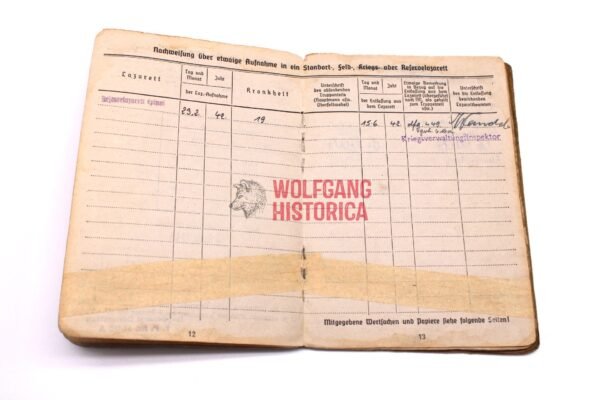 Nachweisung über etwaige Aufnahme in ein Standort-, Feld-, Kriegs- oder Reservelazarett
Lazarett
Tag und Monat
Jahr
der Laz.-Aufnahme
Krankheit
Unterschrift
des absendenden
Truppenteils
(Hauptmann usw.
Oberfeldwebel)
Tag und Monat
Jahr
der Entlassung aus
dem Lazarett
Etwaige Bemerkung
in Bezug auf die
Entlassung aus dem
Lazarett
zum Truppenteil
usw.)
Unterschrift
des die Entlassung
bewirkenden
Lazarettbeamten
Reservelazarett
29.2.
42
19
15.6.
42.
Kriegsverwaltungsinspektor
WOLFGANG
HISTORICA
Mitgegebene Wertsachen und Papiere siehe folgende Seiten!
12
13